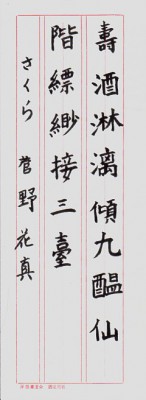 壽酒淋漓傾九醞仙
階縹緲接三臺
さくら 菅野花真